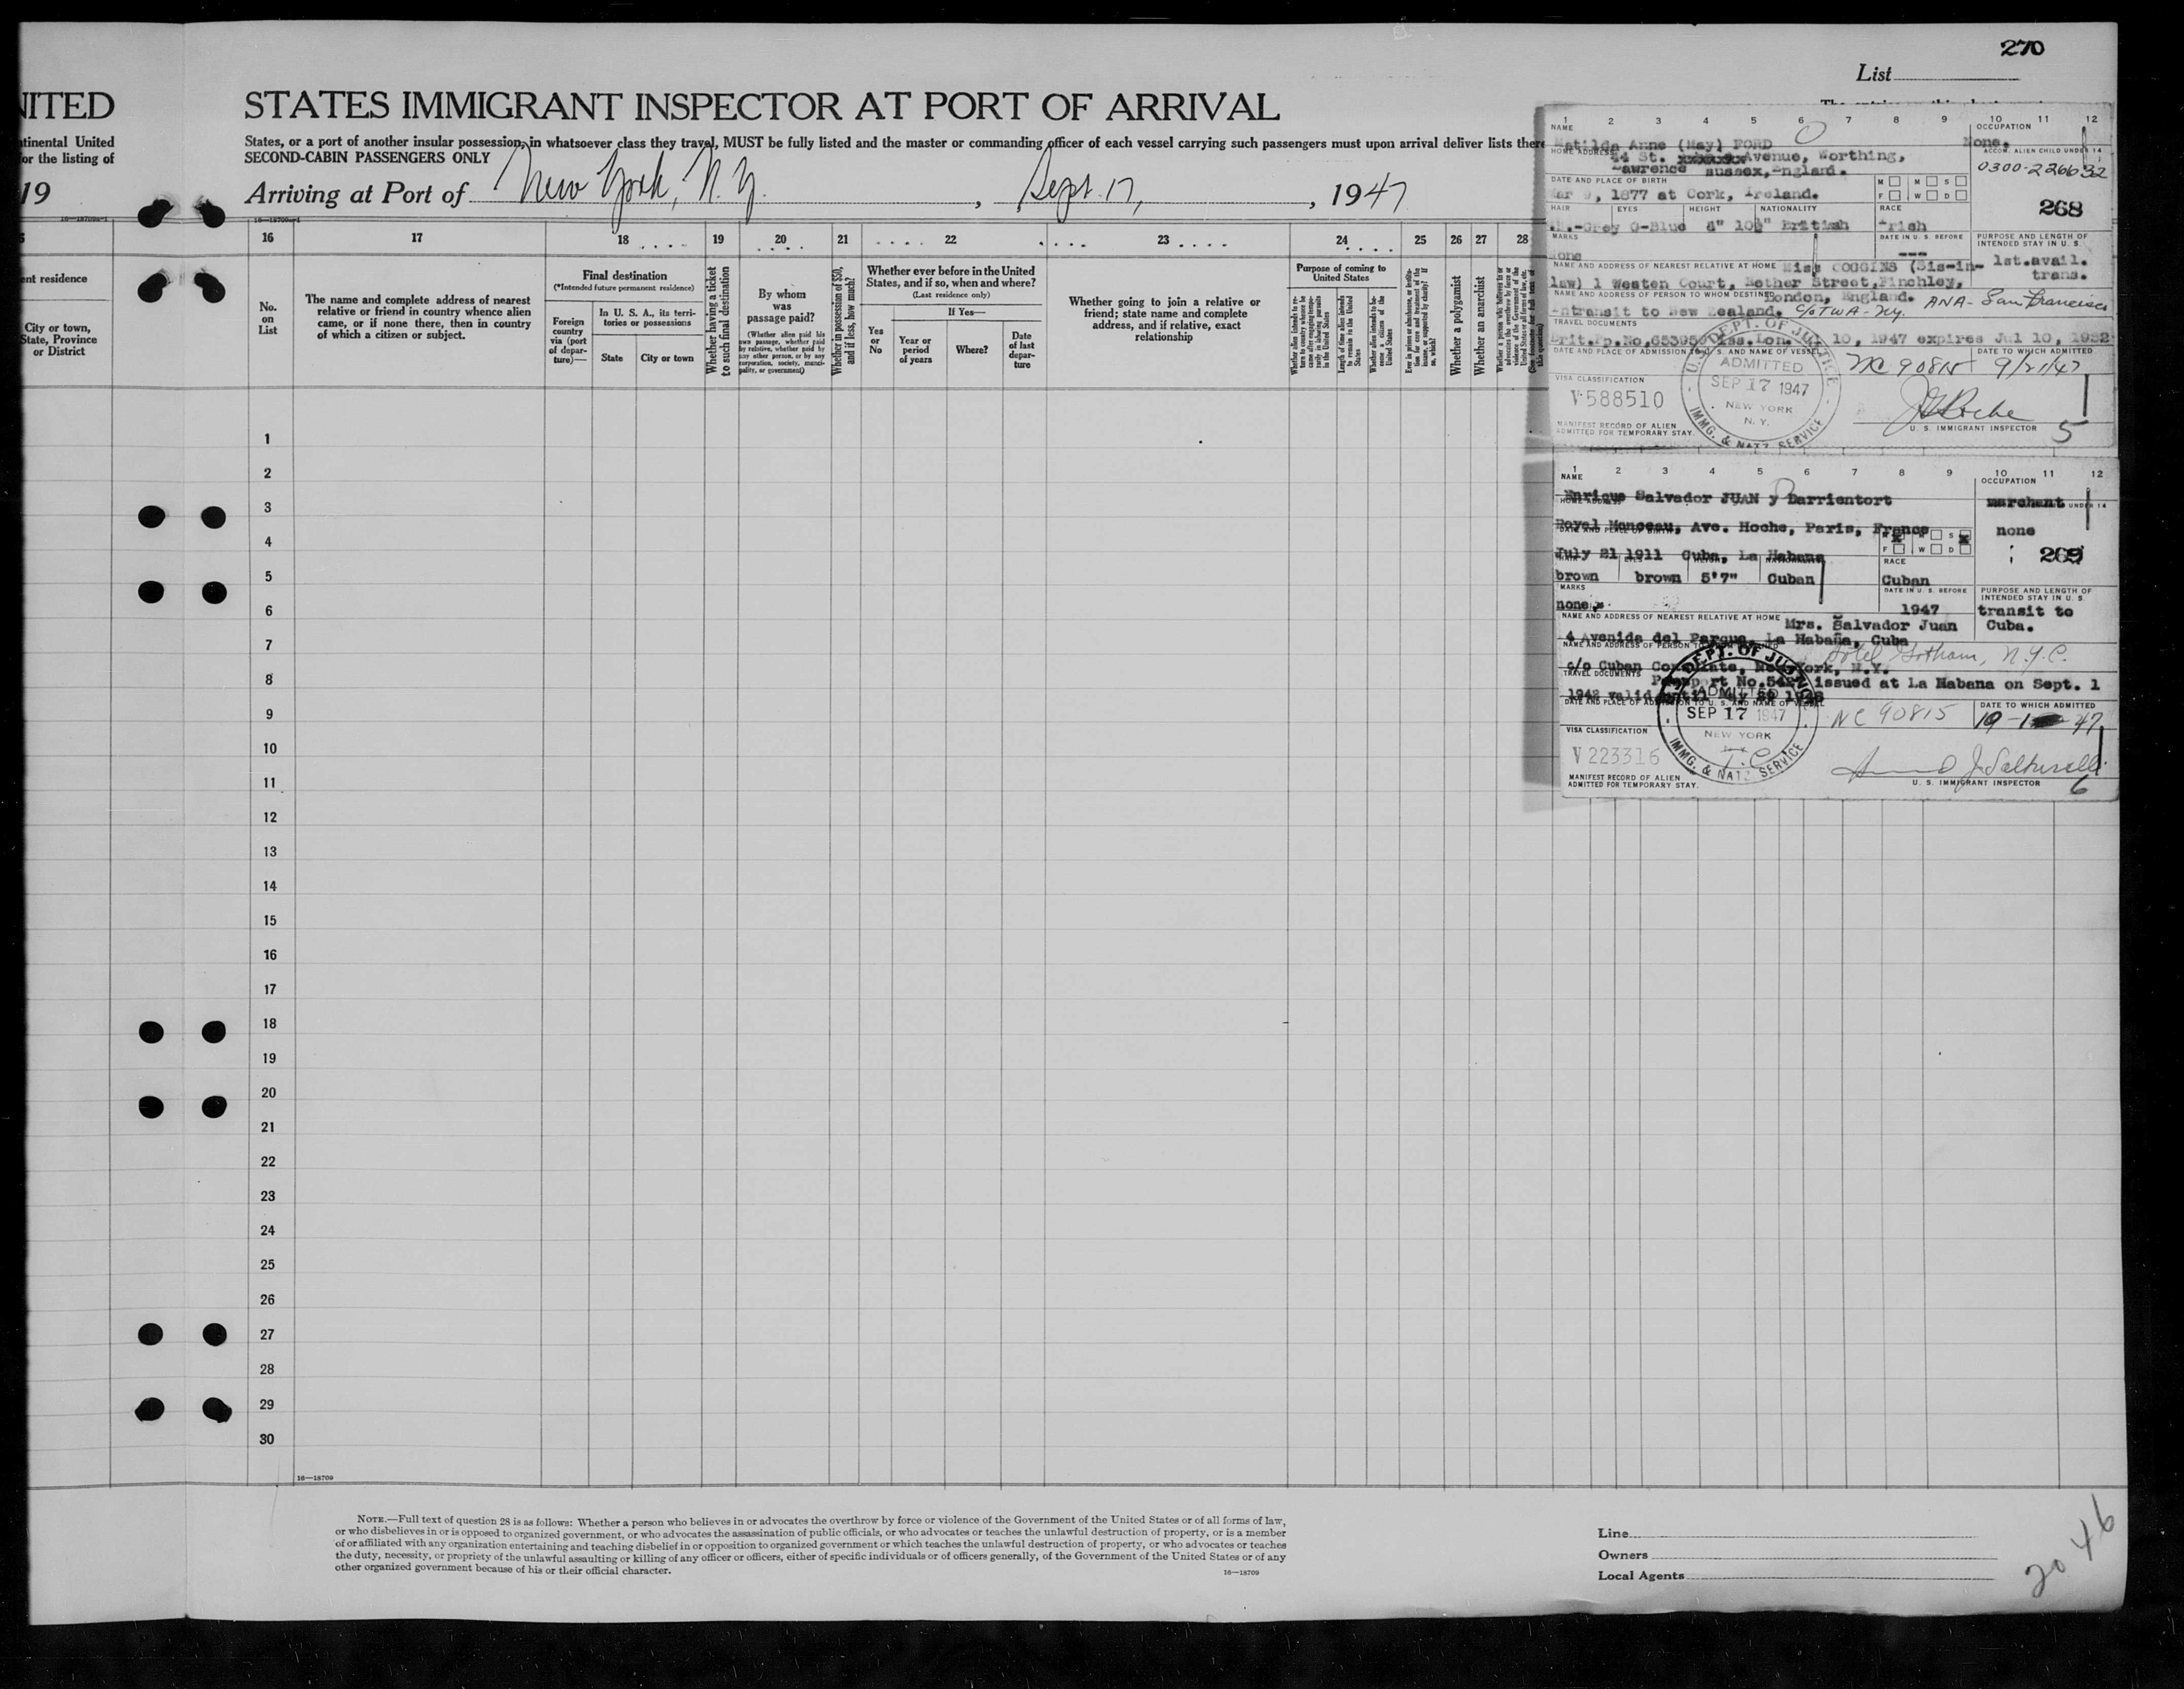 270
List
NITED STATES IMMIGRANT INSPECTOR AT PORT OF ARRIVAL
tinental United States, or a port of another insular possession, in whatsoever class they travel, MUST be fully listed and the master or commanding officer of each vessel carrying such passengers must upon arrival deliver lists there
or the listing of SECOND-CABIN PASSENGERS ONLY
19 Arriving at Port of New York, N.Y. , Sept. 17, , 1947
16 17 18 19 20 21 22 23 24 25 26 27 28
ent residence
City or town, State, Province or District
No. on List
The name and complete address of nearest relative or friend in country whence alien came, or if none there, then in country of which a citizen or subject.
Final destination
(*Intended future permanent residence)
Foreign country via (port of departure)—
In U. S. A., its territories or possessions
State
City or town
Whether having a ticket to such final destination
By whom was passage paid?
(Whether alien paid his own passage, whether paid by relative, whether paid by any other person, or by any corporation, society, municipality, or government)
Whether in possession of $50, and if less, how much?
Whether ever before in the United States, and if so, when and where?
(Last residence only)
Yes or No
If Yes—
Year or period of years
Where?
Date of last departure
Whether going to join a relative or friend; state name and complete address, and if relative, exact relationship
Purpose of coming to United States
Length of time alien intends to remain in the United States
Whether a polygamist
Whether an anarchist
1
2
3
4
5
6
7
8
9
10
11
12
13
14
15
16
17
18
19
20
21
22
23
24
25
26
27
28
29
30
16—18709
NOTE.—Full text of question 28 is as follows: Whether a person who believes in or advocates the overthrow by force or violence of the Government of the United States or of all forms of law,
or who disbelieves in or is opposed to organized government, or who advocates the assassination of public officials, or who advocates or teaches the unlawful destruction of property, or is a member
of or affiliated with any organization entertaining and teaching disbelief in or opposition to organized government or which teaches the unlawful destruction of property, or who advocates or teaches
the duty, necessity, or propriety of the unlawful assaulting or killing of any officer or officers, either of specific individuals or of officers generally, of the Government of the United States or of any
other organized government because of his or their official character.
16—18709
Line
Owners
Local Agents
2046
1 2 3 4 5 6 7 8 9 10 11 12
NAME
OCCUPATION
Matilda Anne (May) FORD
None.
HOME ADDRESS
ACCOM. ALIEN CHILD UNDER 14
44 St. Avenue, Worthing,
Lawrence Sussex, England.
0300-226632
DATE AND PLACE OF BIRTH
M M S
F W D
Mar 9, 1877 at Cork, Ireland.
268
HAIR EYES HEIGHT NATIONALITY RACE
-Grey G-Blue British Irish
MARKS
DATE IN U. S. BEFORE
PURPOSE AND LENGTH OF INTENDED STAY IN U. S.
None
---
1st.avail. trans.
NAME AND ADDRESS OF NEAREST RELATIVE AT HOME Miss COGGINS (Sis-in-
law) 1 Westen Court, Nether Street, Finchley,
NAME AND ADDRESS OF PERSON TO WHOM DESTINED London, England.
ANA - San Francisco
Intransit to New Zealand. c/o TWA - NY.
TRAVEL DOCUMENTS
Brit.Pp.No. Iss.Lon. 10, 1947 expires Jul 10, 1952
DATE AND PLACE OF ADMISSION TO U. S. AND NAME OF VESSEL
DATE TO WHICH ADMITTED
NC 90815 9/21/47
U.S. DEPT. OF JUSTICE
ADMITTED
SEP 17 1947
NEW YORK
N. Y.
IMMG. & NATZ SERVICE
VISA CLASSIFICATION
V 588510
MANIFEST RECORD OF ALIEN
ADMITTED FOR TEMPORARY STAY.
U. S. IMMIGRANT INSPECTOR
5
1 2 3 4 5 6 7 8 9 10 11 12
NAME
OCCUPATION
Enrique Salvador JUAN y Barrientort
merchant
HOME ADDRESS
UNDER 14
Royal Monceau, Ave. Hoche, Paris, France
none
DATE AND PLACE OF BIRTH
M W S
F W D
July 21 1911 Cuba, La Habana
269
RACE
brown brown 5'7" Cuban Cuban
MARKS
DATE IN U. S. BEFORE
PURPOSE AND LENGTH OF INTENDED STAY IN U. S.
none
1947
transit to Cuba.
NAME AND ADDRESS OF NEAREST RELATIVE AT HOME Mrs. Salvador Juan
4 Avenida del Parque, La Habana, Cuba
NAME AND ADDRESS OF PERSON TO WHOM DESTINED
Hotel Gotham, N.Y.C.
c/o Cuban Consulate, New York, N.Y.
TRAVEL DOCUMENTS
Passport issued at La Habana on Sept. 1
1942 valid until 1948
DATE AND PLACE OF ADMISSION TO U. S. AND NAME OF VESSEL
DATE TO WHICH ADMITTED
NC 90815
DEPT. OF JUSTICE
ADMITTED
SEP 17 1947
NEW YORK
IMMG. & NATZ SERVICE
VISA CLASSIFICATION
V 223316
MANIFEST RECORD OF ALIEN
ADMITTED FOR TEMPORARY STAY.
U. S. IMMIGRANT INSPECTOR
6